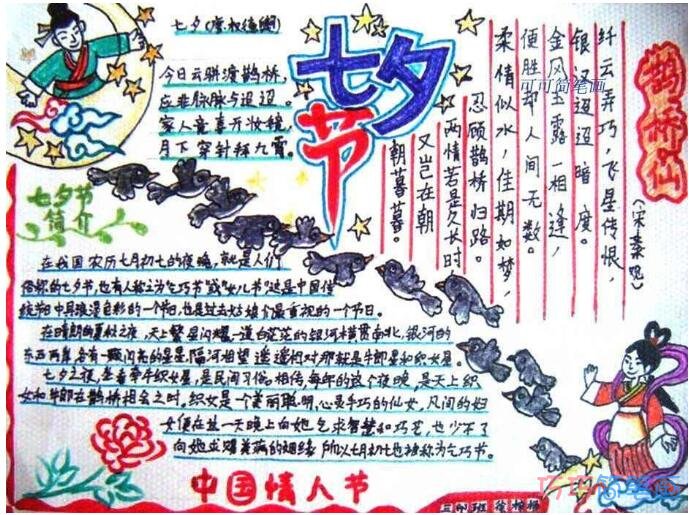 七夕(唐权德舆)
今日云骈渡鹊桥，
应非脉脉与迢迢。
家人竞喜开妆镜，
月下穿针拜九霄。
七夕
节
鹊桥仙
(宋秦观)
纤云弄巧，飞星传恨，
银汉迢迢暗度。
金风玉露一相逢，
便胜却人间无数。
柔情似水，佳期如梦，
忍顾鹊桥归路。
两情若是久长时
又岂在朝
朝暮暮。
可可简笔画
七夕节
简介
在我国农历七月初七的夜晚，就是人们
俗称的七夕节，也有人称之为乞巧节或"女儿节"这是中国传
统节日中具浪漫色彩的一个节日，也是过去姑娘们最重视的一个节日。
在晴朗的夏秋之夜，天上繁星闪耀，一道白茫茫的银河横贯南北，银河的
东西两岸，各有一颗闪亮的星星，隔河相望，遥遥相对那就是牛郎星和织女星。
七夕之夜，坐看牵牛织女星，是民间习俗。相传，每年的这个夜晚，是天上织
女和牛郎在鹊桥相会之时，织女是一个美丽聪明，心灵手巧的仙女，凡间的妇
女便在这一天晚上向她乞求智慧和巧艺，也少不了
向她求赐美满的姻缘，所以七月初七也被称为乞巧节。
中国情人节
班
简笔画